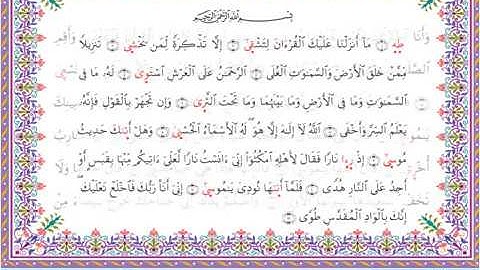 بِسْمِ ٱللَّهِ ٱلرَّحْمَٰنِ ٱلرَّحِيمِ
طه ۝ مَآ أَنزَلْنَا عَلَيْكَ ٱلْقُرْءَانَ لِتَشْقَىٰٓ ۝ إِلَّا تَذْكِرَةً لِّمَن يَخْشَىٰ ۝ تَنزِيلًا
مِّمَّنْ خَلَقَ ٱلْأَرْضَ وَٱلسَّمَٰوَٰتِ ٱلْعُلَى ۝ ٱلرَّحْمَٰنُ عَلَى ٱلْعَرْشِ ٱسْتَوَىٰ ۝ لَهُۥ مَا فِى
ٱلسَّمَٰوَٰتِ وَمَا فِى ٱلْأَرْضِ وَمَا بَيْنَهُمَا وَمَا تَحْتَ ٱلثَّرَىٰ ۝ وَإِن تَجْهَرْ بِٱلْقَوْلِ فَإِنَّهُۥ
يَعْلَمُ ٱلسِّرَّ وَأَخْفَى ۝ ٱللَّهُ لَآ إِلَٰهَ إِلَّا هُوَ لَهُ ٱلْأَسْمَآءُ ٱلْحُسْنَىٰ ۝ وَهَلْ أَتَىٰكَ حَدِيثُ
مُوسَىٰٓ ۝ إِذْ رَءَا نَارًا فَقَالَ لِأَهْلِهِ ٱمْكُثُوٓا۟ إِنِّىٓ ءَانَسْتُ نَارًا لَّعَلِّىٓ ءَاتِيكُم مِّنْهَا بِقَبَسٍ أَوْ
أَجِدُ عَلَى ٱلنَّارِ هُدًى ۝ فَلَمَّآ أَتَىٰهَا نُودِىَ يَٰمُوسَىٰٓ ۝ إِنِّىٓ أَنَا۠ رَبُّكَ فَٱخْلَعْ نَعْلَيْكَ
إِنَّكَ بِٱلْوَادِ ٱلْمُقَدَّسِ طُوًى ۝